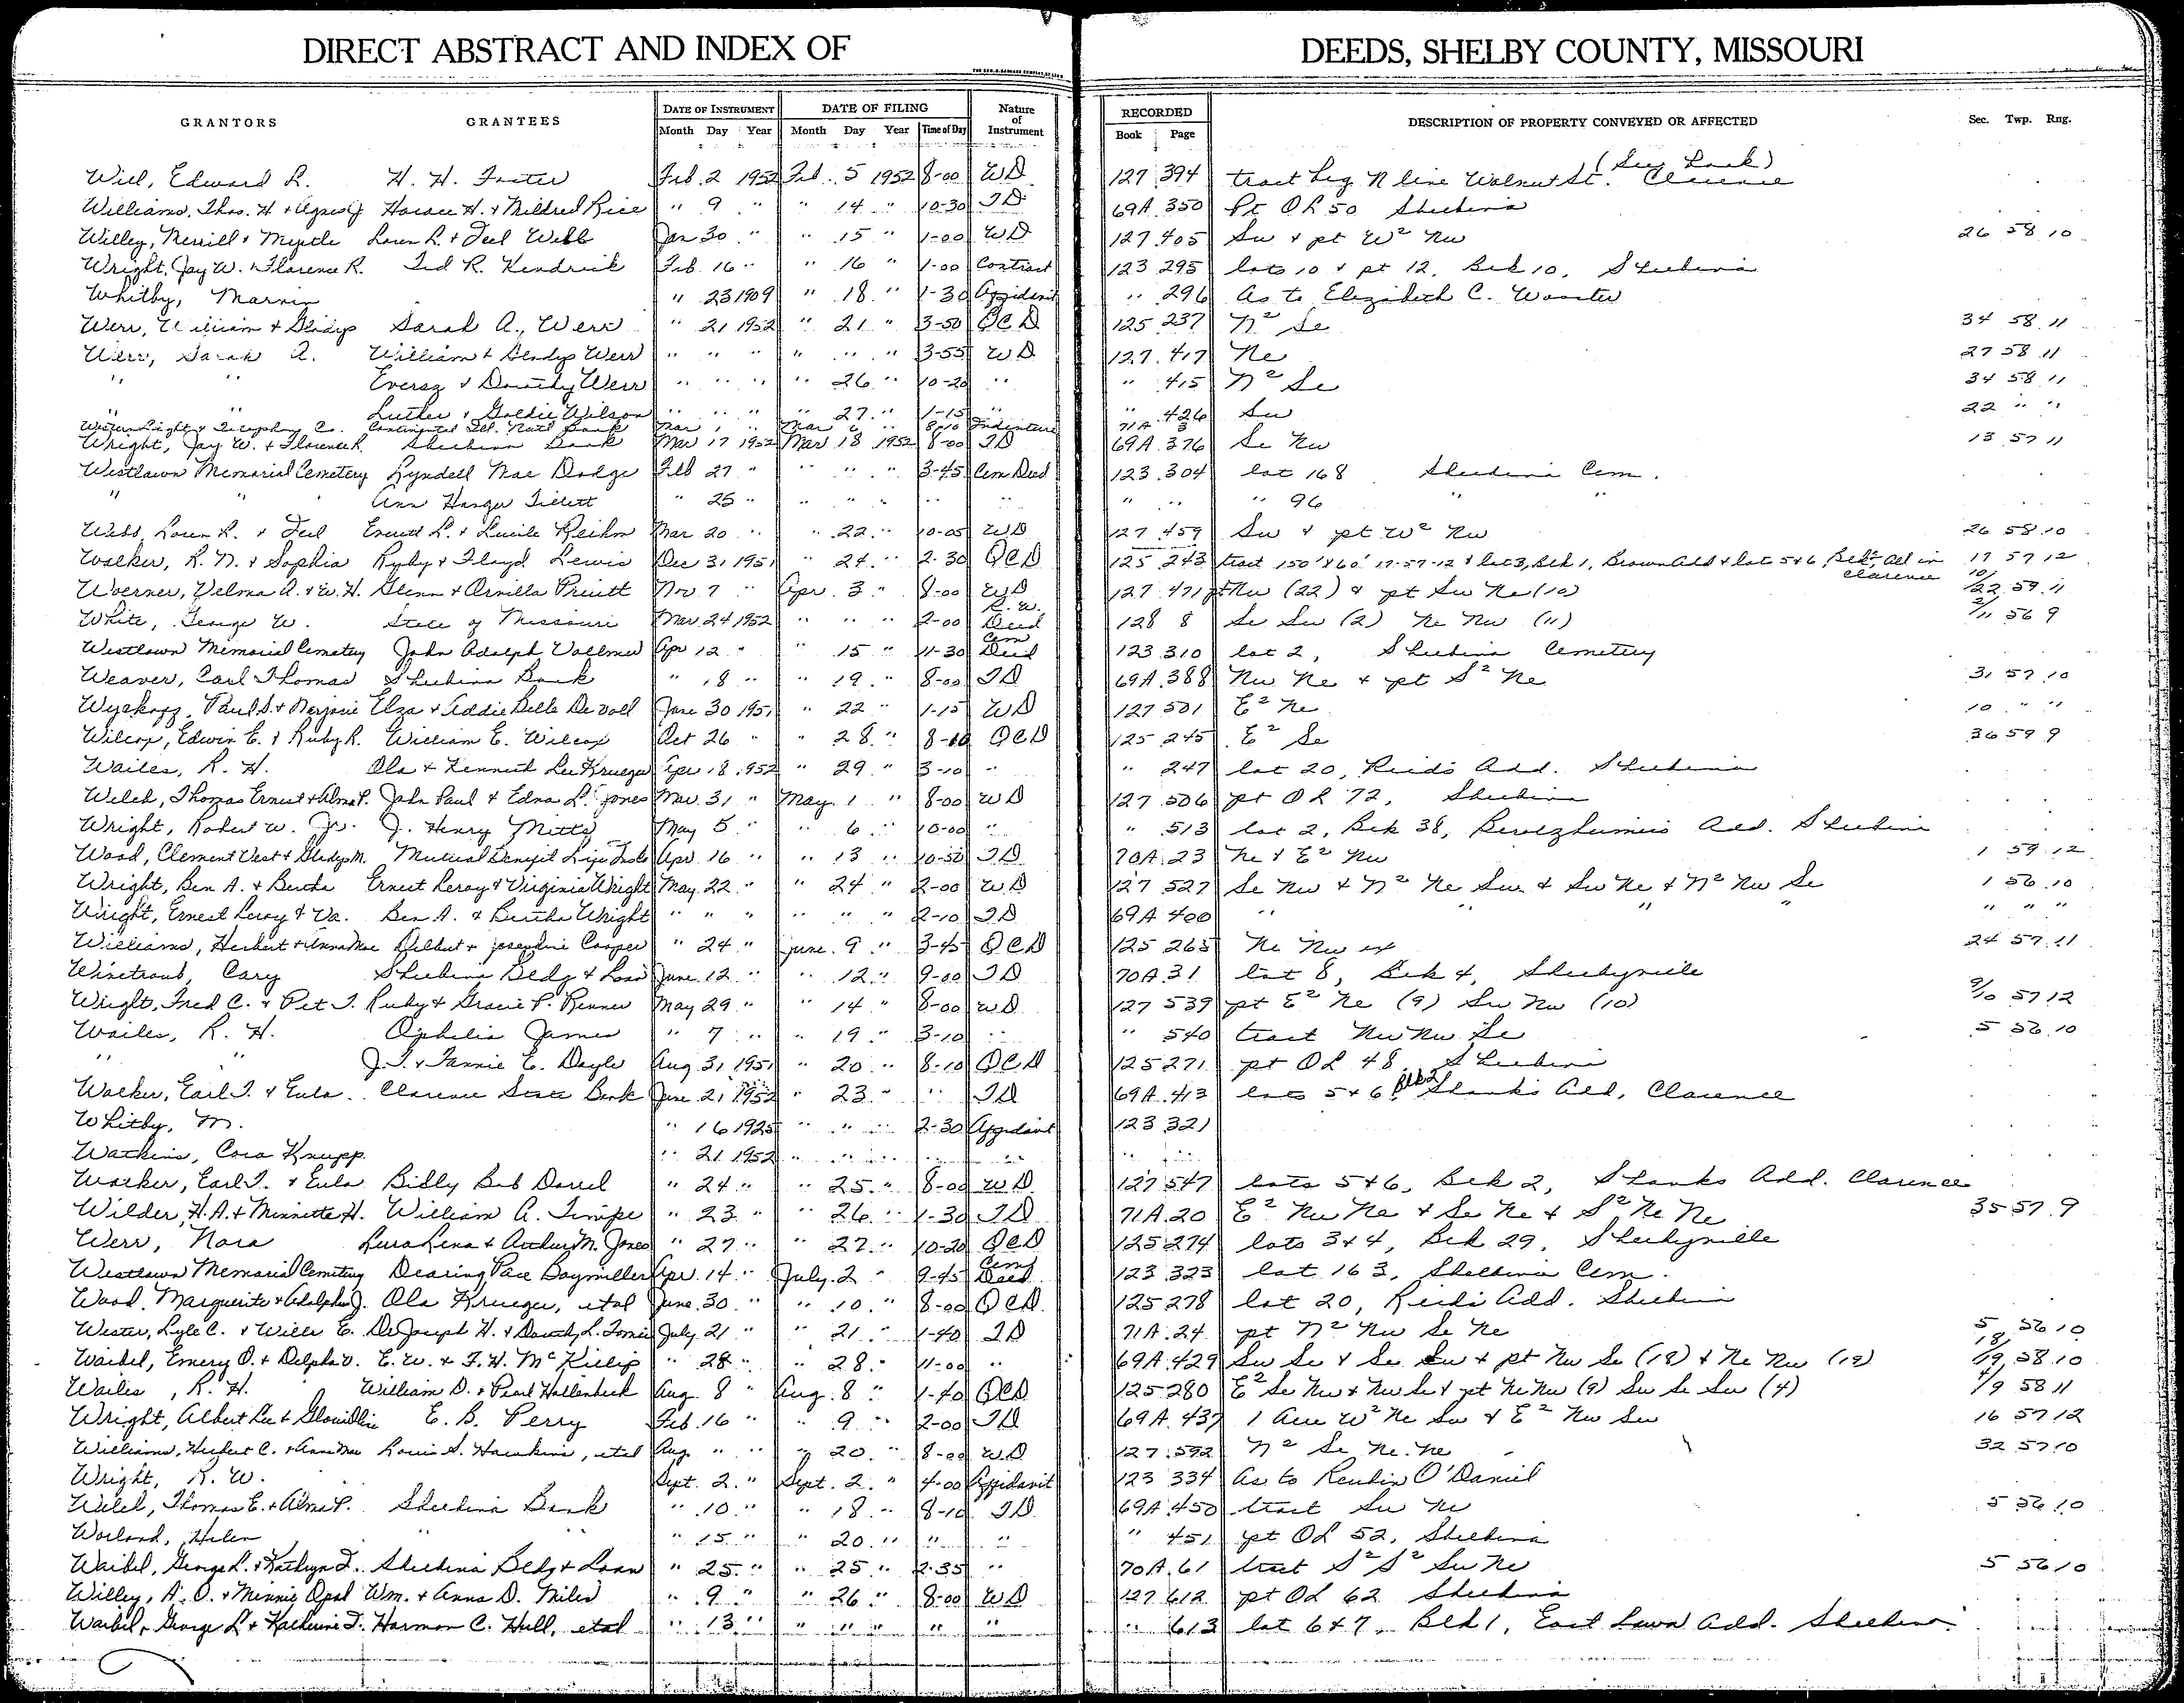 DIRECT ABSTRACT AND INDEX OF DEEDS, SHELBY COUNTY, MISSOURI
GRANTORS GRANTEES DATE OF INSTRUMENT DATE OF FILING Nature of Instrument RECORDED DESCRIPTION OF PROPERTY CONVEYED OR AFFECTED Sec. Twp. Rng.
Month Day Year Month Day Year Time of Day Book Page
Will, Edward L. H. H. Foster Feb. 2 1952 Feb. 5 1952 8-00 WD 127 394 tract beg N line Walnut St. Clarence
Williams, Thos. H + Agnes J. Horace H. + Mildred Rice " 9 " " 14 " 10-30 TD 69A 350 Pt OL 50 Shelbina
Willey, Merrill + Myrtle Loren L. + Teel Webb Jan 30 " " 15 " 1-00 WD 127 405 Sw + pt W² Nw 26 58 10
Wright, Jay W. + Florence R. Ted R. Kendrick Feb. 16 " " 16 " 1-00 Contract 123 295 lots 10 + pt 12, Blk 10, Shelbina
Whitby, Marvin " 23 1909 " 18 " 1-30 Affidavit " 296 As to Elizabeth C. Wooster
Werr, William + Gladys Sarah A. Werr " 21 1952 " 21 " 3-50 QCD 125 237 N² Se 34 58 11
Werr, Sarah A. William + Gladys Werr " " " " " " 3-55 WD 127 417 Ne 27 58 11
" " Eversz + Dorothy Werr " " " " 26 " 10-20 " " 415 N² Se 34 58 11
" " Luther + Goldie Wilson " " " " 27 " 1-15 " " 426 Sw 22 " "
Western Light + Telephone Co. Continental Ill. Nat'l Bank Mar 1 " Mar 6 " 8-10 Indenture 71A 3
Wright, Jay W. + Florence R. Shelbina Bank Mar 17 1952 Mar 18 1952 8-00 TD 69A 376 Se Nw 13 57 11
Westlawn Memorial Cemetery Lyndell Mae Dodge Feb 27 " " " " 3-45 Cem Deed 123 304 lot 168 Shelbina Cem.
" " Ann Hanger Tillett " 25 " " " " " " " " " 96 " "
Webb, Loren L. + Teel Everett L. + Lucile Reihm Mar 20 " " 22 " 10-05 WD 127 459 Sw + pt W² Nw 26 58 10
Walker, R. N. + Sophia Ryby + Floyd Lewis Dec 31 1951 " 24 " 2-30 QCD 125 243 tract 150' x 60' 17-57-12 + lot 3, Blk 1, Brown Add + lot 5+6, Blk 2, all in Clarence 17 57 12
Woerner, Velma A. + W. H. Glenn + Arnilla Pruitt Nov. 7 " Apr. 3 " 8-00 WD 127 471 pt Nw (22) + pt Sw Ne (10) 10/22 59 11
White, George W. State of Missouri Mar. 24 1952 " " " 2-00 R.W. Deed 128 8 Se Sw (2) Ne Nw (11) 2/11 56 9
Westlawn Memorial Cemetery John Adolph Vollmer Apr 12 " " 15 " 11-30 Cem Deed 123 310 lot 2, Shelbina Cemetery
Weaver, Carl Thomas Shelbina Bank " 18 " " 19 " 8-00 TD 69A 388 Nw Ne + pt S² Ne 31 57 10
Wyckoff, Paul S. + Marjorie Elza + Addie Belle De Voll June 30 1951 " 22 " 1-15 WD 127 501 E² Ne 10 " "
Wilcox, Edwin E. + Ruby R. William E. Wilcox Oct 26 " " 28 " 8-10 QCD 125 245 E² Se 36 59 9
Wailes, R. H. Ola + Kenneth Lee Krueger Apr 18 1952 " 29 " 3-10 " " 247 lot 20, Reids Add. Shelbina
Welch, Thomas Ernest + Alma P. John Paul + Edna L. Jones Mar. 31 " May 1 " 8-00 WD 127 506 pt OL 72, Shelbina
Wright, Robert W. Jr. J. Henry Mitts May 5 " " 6 " 10-00 " " 513 lot 2, Blk 38, Add. Shelbina
Wood, Clement Vest + Gladys M. Mutual Benefit Life Ins Co Apr. 16 " " 13 " 10-50 TD 70A 23 Ne + E² Nw 1 59 12
Wright, Ben A. + Bertha Ernest Leroy + Virginia Wright May 22 " " 24 " 2-00 WD 127 527 Se Nw + N² Ne Sw + Sw Ne + N² Nw Se 1 56 10
Wright, Ernest Leroy + Va. Ben A. + Bertha Wright " " " " " " 2-10 TD 69A 400 " " " " " "
Williams, Herbert + Anna Mae Delbert + Josephine Cooper " 24 " June 9 " 3-45 QCD 125 265 Ne Nw ex 24 57 11
Winetroub, Cary Shelbina Bldg + Loan June 12 " " 12 " 9-00 TD 70A 31 lot 8, Blk 4, Shelbyville
Wright, Fred C. + Pet T. Ruby + Gracie P. Renner May 29 " " 14 " 8-00 WD 127 539 pt E² Ne (9) Sw Nw (10) 9/10 57 12
Wailes, R. H. Ophelia James " 7 " " 19 " 3-10 " " 540 tract Nw Nw Se 5 56 10
" " J. T. + Fannie E. Dayle Aug 31 1951 " 20 " 8-10 QCD 125 271 pt OL 48, Shelbina
Walker, Earl T. + Eula Clarence State Bank June 21 1952 " 23 " " TD 69A 413 lots 5+6, Blk 2 Shanks Add, Clarence
Whitby, M. " 16 1925 " " " 2-30 Affidavit 123 321
Watkins, Cora Knupp " 21 1952 " " " " " " "
Walker, Earl T. + Eula Billy Bob Daniel " 24 " " 25 " 8-00 WD 127 547 lots 5+6, Blk 2, Shanks Add. Clarence
Wilder, H. A. + Minnette H. William A. Timpe " 23 " " 26 " 1-30 TD 71A 20 E² Nw Ne + Se Ne + S² Ne Ne 35 57 9
Werr, Nora Lura Lena + Arthur M. Jones " 27 " " 27 " 10-20 QCD 125 274 lots 3+4, Blk 29, Shelbyville
Westlawn Memorial Cemetery Dearing Pace Baymiller Apr. 14 " July 2 " 9-45 Cem Deed 123 323 lot 163, Shelbina Cem.
Wood, Marguerite + Adolphus J. Ola Krueger, etal June 30 " " 10 " 8-00 QCD 125 278 lot 20, Reids Add. Shelbina
Wester, Lyle C. + Willa E. De Joseph H. + Dorothy L. July 21 " " 21 " 1-40 TD 71A 24 pt N² Nw Se Ne 5 56 10
Waibel, Emery O. + Delpha V. E. W. + F. H. McKillip " 28 " " 28 " 11-00 " 69A 429 Sw Se + Se Sw + pt Nw Se (18) + Ne Nw (19) 18/19 58 10
Wailes, R. H. William D. + Pearl Hollenbeck Aug. 8 " Aug. 8 " 1-40 QCD 125 280 E² Se Nw + Nw Se + pt Ne Nw (9) Sw Se Sw (4) 4/9 58 11
Wright, Albert Lee + E. B. Perry Feb. 16 " " 9 " 2-00 TD 69A 437 1 Acre W² Ne Sw + E² Nw Sw 16 57 12
Williams, Herbert C. + Anna Mae Louis S. Hawkins, etal Aug " " " 20 " 8-00 WD 127 592 N² Se Ne Ne 32 57 10
Wright, R. W. Sept. 2 " Sept. 2 " 4-00 Affidavit 123 334 As to Reubin O'Daniel
Welch, Thomas E. + Alma P. Shelbina Bank " 10 " " 18 " 8-10 TD 69A 450 tract Sw Ne 5 56 10
Worland, Helen " " " 15 " " 20 " " " " 451 pt OL 52, Shelbina
Waibel, George L. + Kathryn F. Shelbina Bldg + Loan " 25 " " 25 " 2-35 " 70A 61 tract S² S² Sw Ne 5 56 10
Willey, A. O. + Minnie Opal Wm. + Anna D. Miles " 9 " " 26 " 8-00 WD 127 612 pt OL 62 Shelbina
Waibel, George L + Katherine F. Harmon C. Hull, etal " 13 " " " " " " " 613 lot 6+7, Blk 1, East Lawn Add. Shelbina